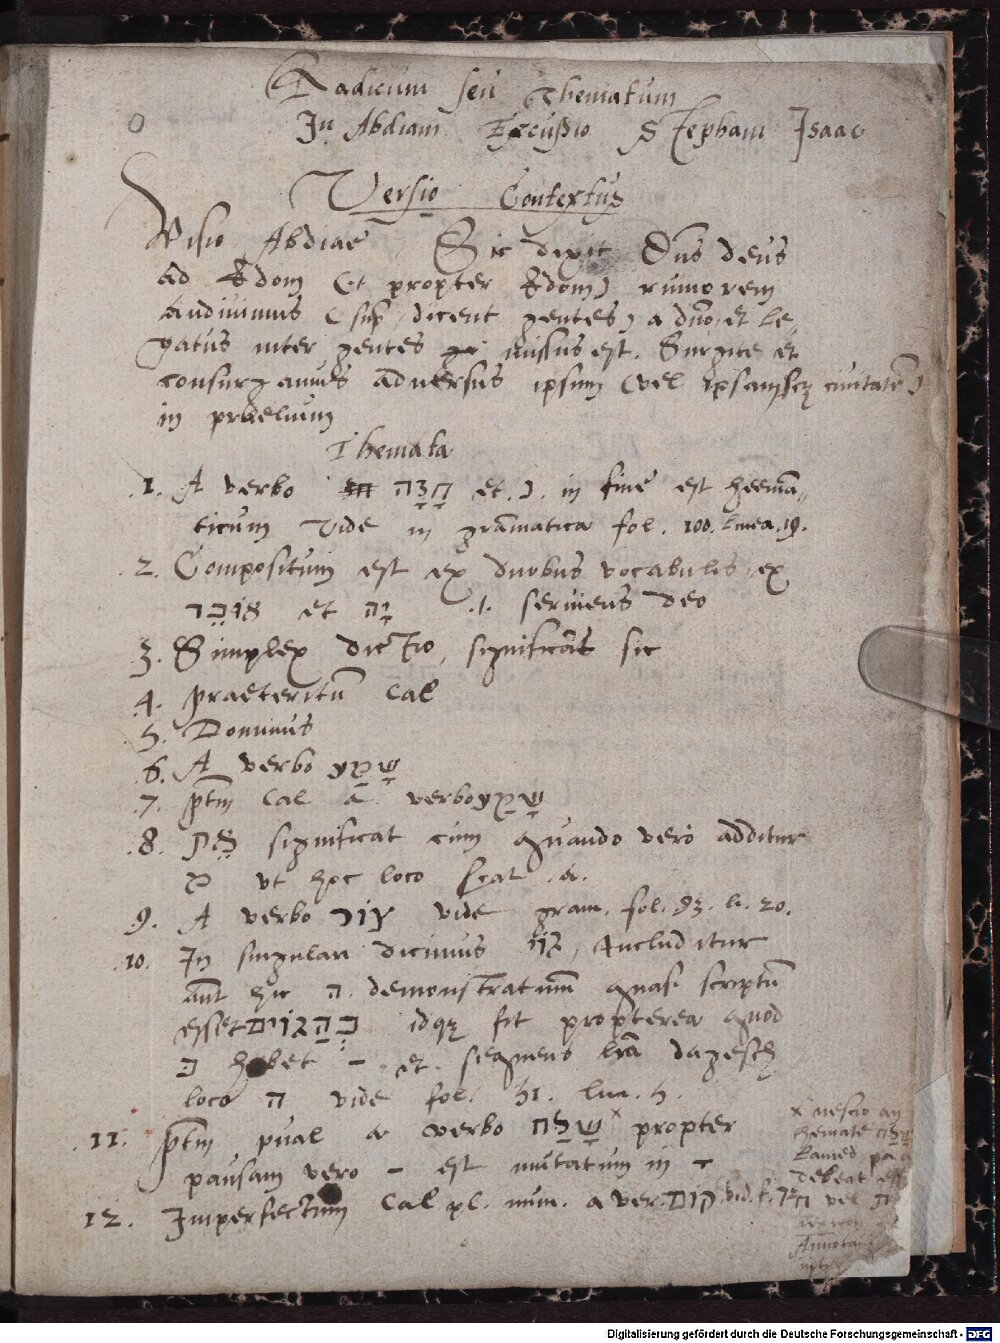 Radicum seu Thematum
In Abdiam Excussio Stephani Isaac
Versio Contextus
Visio Abdiae Sic dixit Dns deus
ad Edom (et propter Edom) rumorem
audivimus (sup. dicent gentes) a dno. et le-
gatus inter gentes missus est. Surgite et
consurgamus adversus ipsum (vel ipsam scz civitatē)
in praelium
Themata
1. A verbo חָזָה et ן. in fine est heemā-
ticum Vide in gramatica fol. 100. linea. 19.
2. Compositum est ex duobus vocabulis, ex
עוֹבֵד et יָה .i. serviens deo
3. Simplex dictio, significās sic
4. praeteritū Cal
5. Dominus
6. A verbo שָׁמַע
7. ptm Cal a verbo שָׁמַע
8. אֵת significat cum quando vero additur
מ ut hoc loco scat a.
9. A verbo צוּר vide gram. fol. 93. li. 20.
10. In singulari dicimus גּוֹי, Includitur
aūt hic ה. demonstrativum quasi scriptū
esset בְּהַגּוֹיִם idqz fit propterea quod
ב habet - et sequens lrā dagesch
loco ה vide fol. 31. lin. 5.
11. ptm pual a verbo שָׁלַח x propter
pausam vero - est mutatum in ָ
12. Imperfectum Cal pl. num. a ver. קוּם vid. f. 72
x nescio an
themate שׁלח
Lamed
debeat
ח vel
Annotati